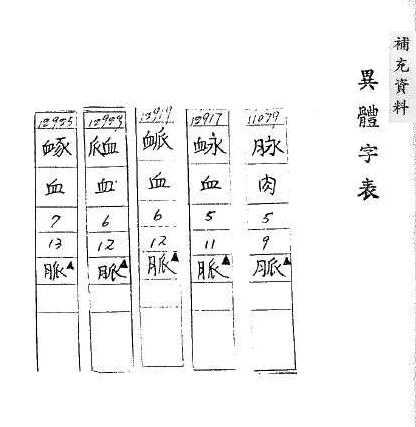 補充資料
異體字表
11079
脉
肉
5
9
脈▲
12917
䘑
血
5
11
脈▲
12919
衇
血
6
12
脈▲
血
6
12
脈▲
12925
血
7
13
脈▲